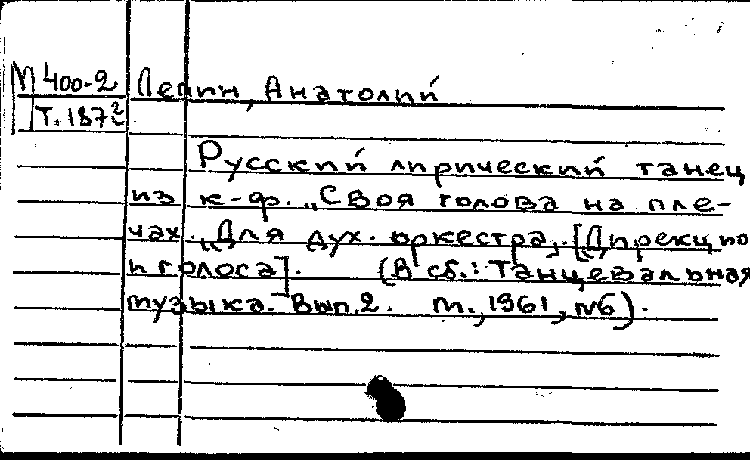 М 400-2 Лепин, Анатолий
Т. 187²
Русский лирический танец
из к-ф. „Своя голова на пле-
чах". Для дух. оркестра, [Дирекцио
н голоса]. (В сб.: Танцевальная
музыка. Вып. 2. М., 1961, №6).